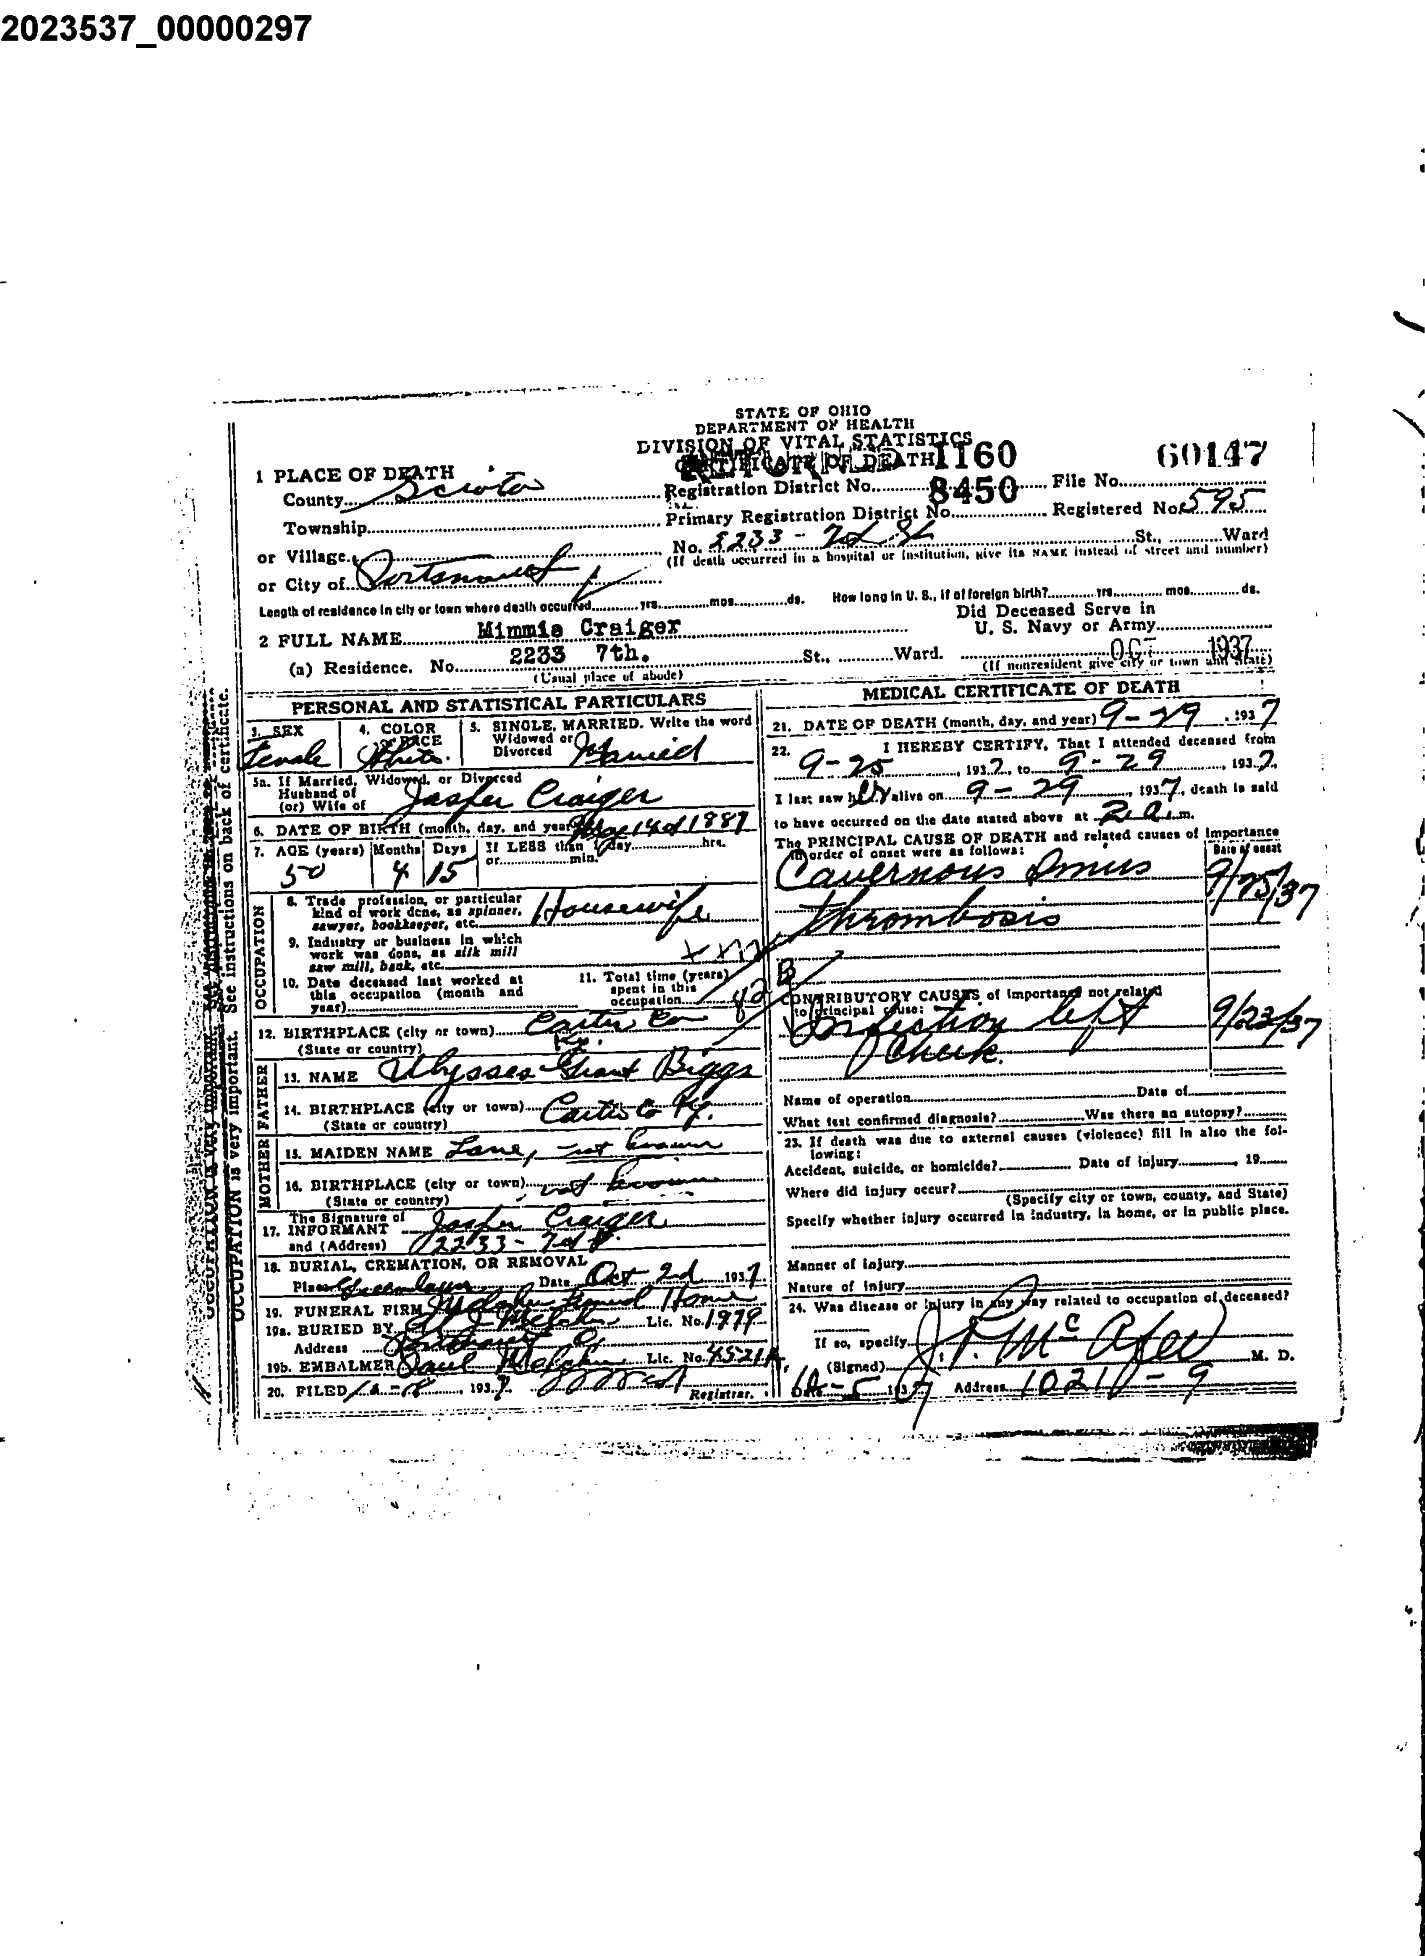 2023537_00000297
STATE OF OHIO
DEPARTMENT OF HEALTH
DIVISION OF VITAL STATISTICS
CERTIFICATE OF DEATH
1 PLACE OF DEATH
County Scioto
Registration District No. 1160 File No. 60147
Township Primary Registration District No. 8450 Registered No. 595
or Village No. 2233 - 7th St St., Ward
(If death occurred in a hospital or institution, give its NAME instead of street and number)
or City of Portsmouth
Length of residence in city or town where death occurred yrs. mos. ds. How long in U. S., if of foreign birth? yrs. mos. ds.
2 FULL NAME Mimmie Craiger
Did Deceased Serve in
U. S. Navy or Army
(a) Residence. No. 2233 7th. St., Ward. OCT 1937
(Usual place of abode) (If nonresident give city or town and State)
OCCUPATION is very important. See instructions on back of certificate.
PERSONAL AND STATISTICAL PARTICULARS
3. SEX 4. COLOR OR RACE 5. SINGLE, MARRIED. Write the word
Widowed or
Divorced
Female White. Married
5a. If Married, Widowed, or Divorced
Husband of
(or) Wife of Jasper Craiger
6. DATE OF BIRTH (month, day, and year) 14 1887
7. AGE (years) Months Days If LESS than 1 day hrs.
or min.
50 4 15
OCCUPATION
8. Trade profession, or particular
kind of work done, as spinner,
sawyer, bookkeeper, etc. Housewife
9. Industry or business in which
work was done, as silk mill
saw mill, bank, etc.
10. Date deceased last worked at
this occupation (month and
year)
11. Total time (years)
spent in this
occupation
12. BIRTHPLACE (city or town) Carter Co
(State or country) Ky.
FATHER
13. NAME Ulysses Grant Biggs
14. BIRTHPLACE (city or town) Carter Co Ky.
(State or country)
MOTHER
15. MAIDEN NAME Lane, - not known
16. BIRTHPLACE (city or town) not known
(State or country)
The Signature of
17. INFORMANT Jasper Craiger
and (Address) 2233 - 7th St.
18. BURIAL, CREMATION, OR REMOVAL
Place Greenlawn Date Oct 2d 1937
19. FUNERAL FIRM Melcher Funeral Home
19a. BURIED BY Melcher Lic. No. 1979
Address Portsmouth O.
19b. EMBALMER Paul Melcher Lic. No. 4521A
20. FILED 193 Registrar.
MEDICAL CERTIFICATE OF DEATH
21. DATE OF DEATH (month, day, and year) 9-29, 1937
22. I HEREBY CERTIFY, That I attended deceased from
9-25, 1937, to 9-29, 1937.
I last saw her alive on 9-29, 1937, death is said
to have occurred on the date stated above at 2 a.m.
The PRINCIPAL CAUSE OF DEATH and related causes of importance
in order of onset were as follows: Date of onset
Cavernous Sinus 9/25/37
Thrombosis
CONTRIBUTORY CAUSES of importance not related
to principal cause:
Infection left 9/23/37
Cheek.
Name of operation Date of
What test confirmed diagnosis? Was there an autopsy?
23. If death was due to external causes (violence) fill in also the fol-
lowing:
Accident, suicide, or homicide? Date of injury, 19
Where did injury occur?
(Specify city or town, county, and State)
Specify whether injury occurred in industry, in home, or in public place.
Manner of injury
Nature of injury
24. Was disease or injury in any way related to occupation of deceased?
If so, specify
(Signed) McAfee M. D.
Date 10-5 1937 Address 1021 - 9